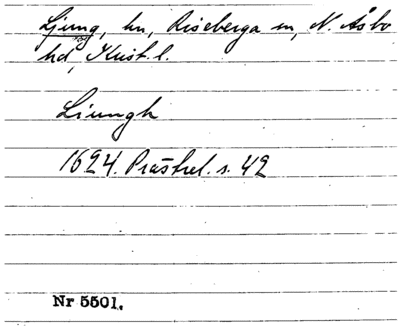 Ljung, hn, Riseberga sn, N. Åsbo
hd, Krist. l.
Liungh
1624. Prästrel. s. 42
Nr 5501.